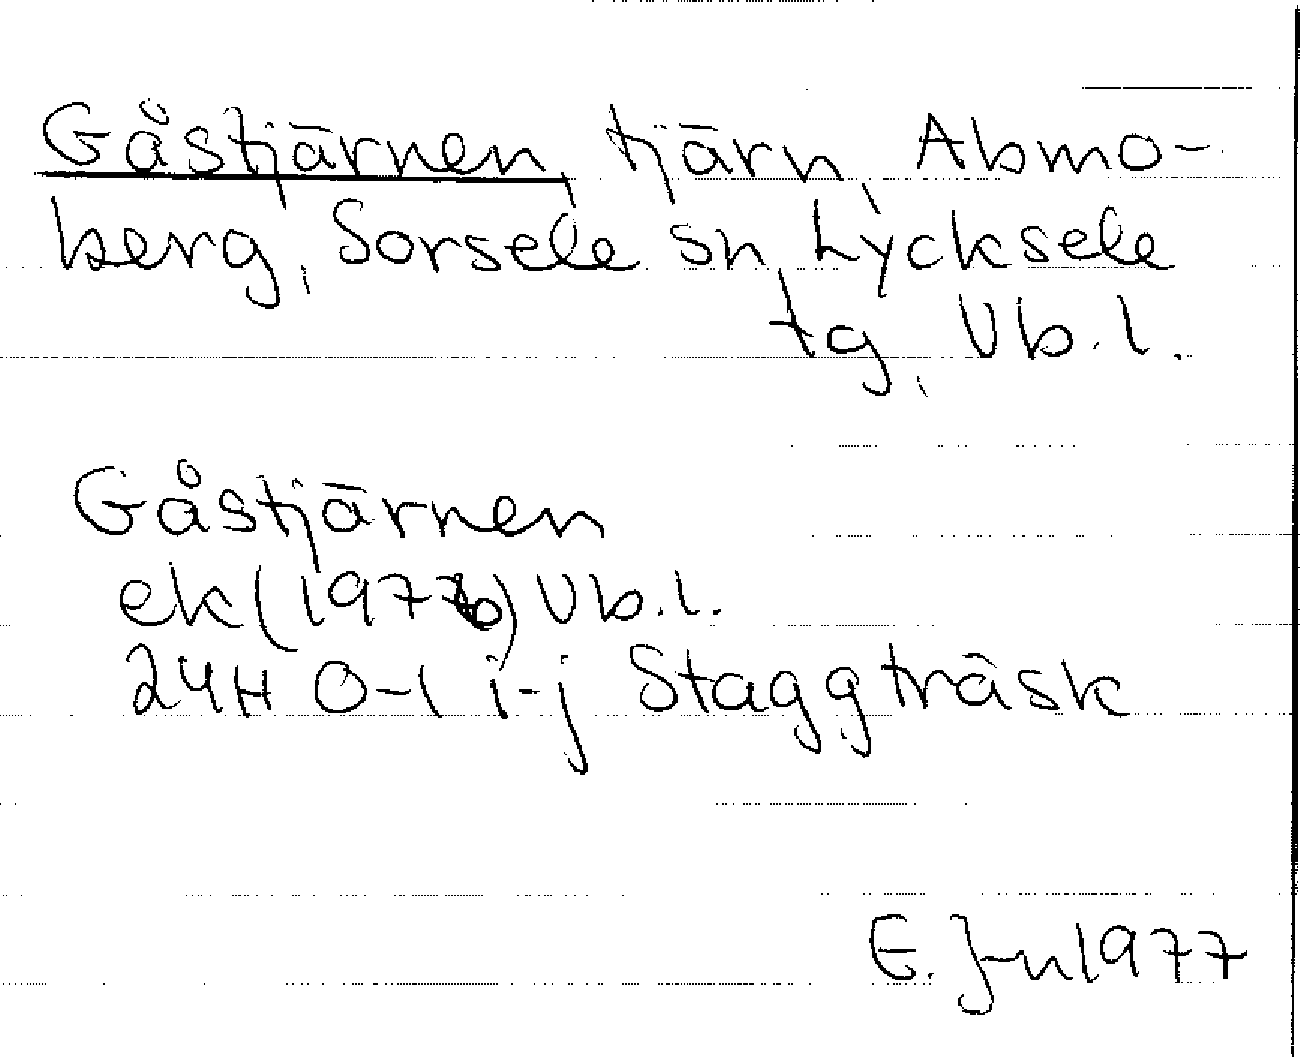 Gåstjärnen, tjärn, Abmo-
berg, Sorsele sn, Lycksele
tg, Vb.l.
Gåstjärnen
ek (1976) Vb.l.
24H 0-1 i-j Staggträsk
E. J-n 1977